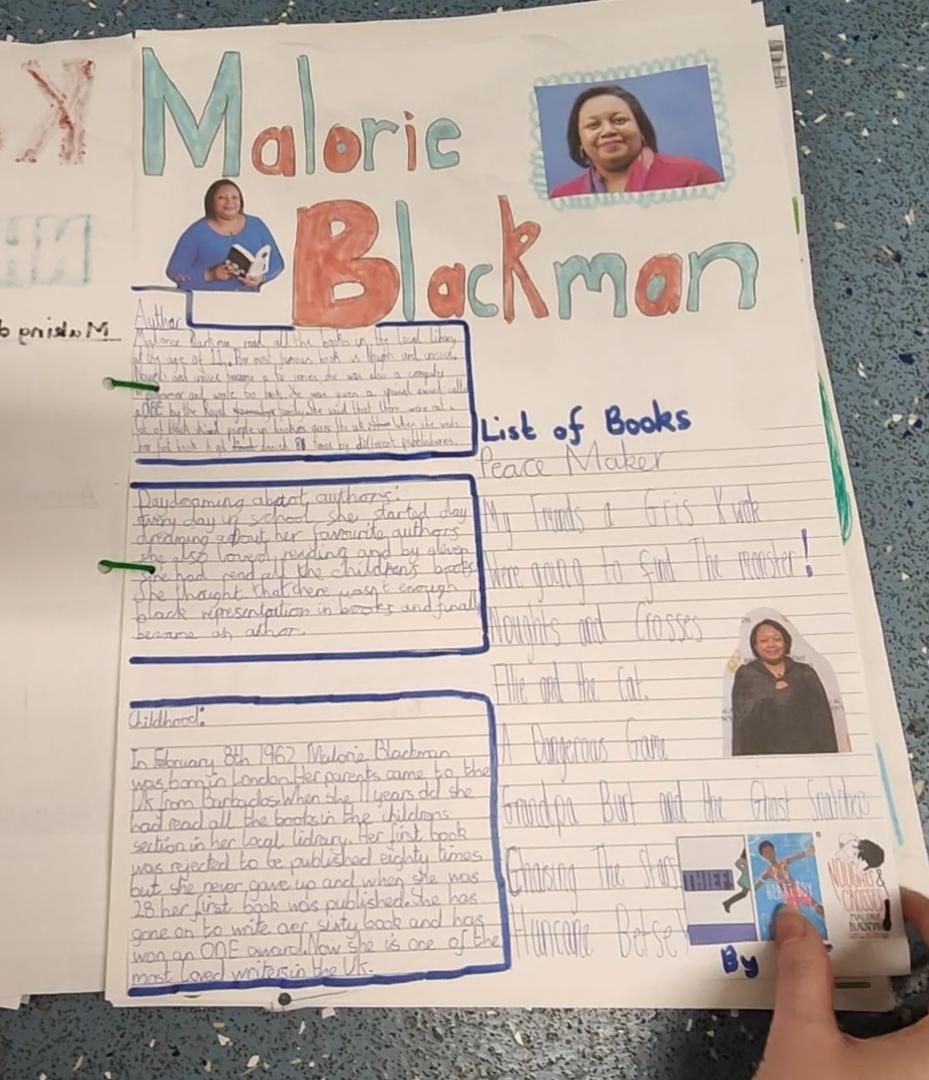 Malorie
Blackman
Author
Malorie Blackman read all the books in the local library
at the age of 11. For most famous book is Nough and crosses.
Novels and crosses became a tv series she was also a computer
programmer and wrote 60 book. She was given a award called
a OBE by the Royal family she said that there were not a
lot of black people in books the uk when she made
her first book it got 81 times by different
Daydreaming about authors!
every day in school she started day
dredming about her favourite authors
she also loved reading and by eleven
she had read all the children's books
She thought that there wasn't enough
black representation in books and finally
became an athor.
Childhood:
In February 8th 1962 Malorie Blackman
was born in London. Her parents came to the
Uk from Barbados. When she 11 years old she
had read all the books in the childrens
section in her local library. Her first book
was rejected to be published eighty times
but she never gave up and when she was
28 her first book was published. She has
gone on to write over sixty book and has
won an OBE award. Now she is one of the
most Loved writers in the Uk.
List of Books
Peace Maker
My Friends a Gris Kwok
Were going to find The monster!
Noughts and Crosses
Ellie and the Cat.
A Dangerous Game
Grandpa Burt and the Ghost Snatchers
Chasing The Stars
Hurricane Betsey
THIEF!
NOUGHTS &
CROSSES
MALORIE
BLACKMAN
By
Making